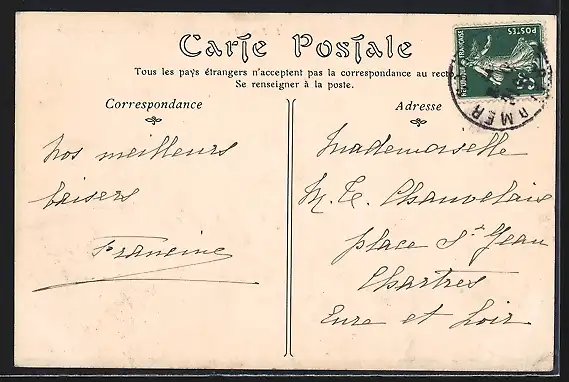 Carte Postale
Tous les pays étrangers n'acceptent pas la correspondance au recto
Se renseigner à la poste.
Correspondance
Nos meilleurs
baisers
Francine
Adresse
Mademoiselle
M. Th. Chauvelais
place St Jean
Chartres
Eure et Loir
POSTES